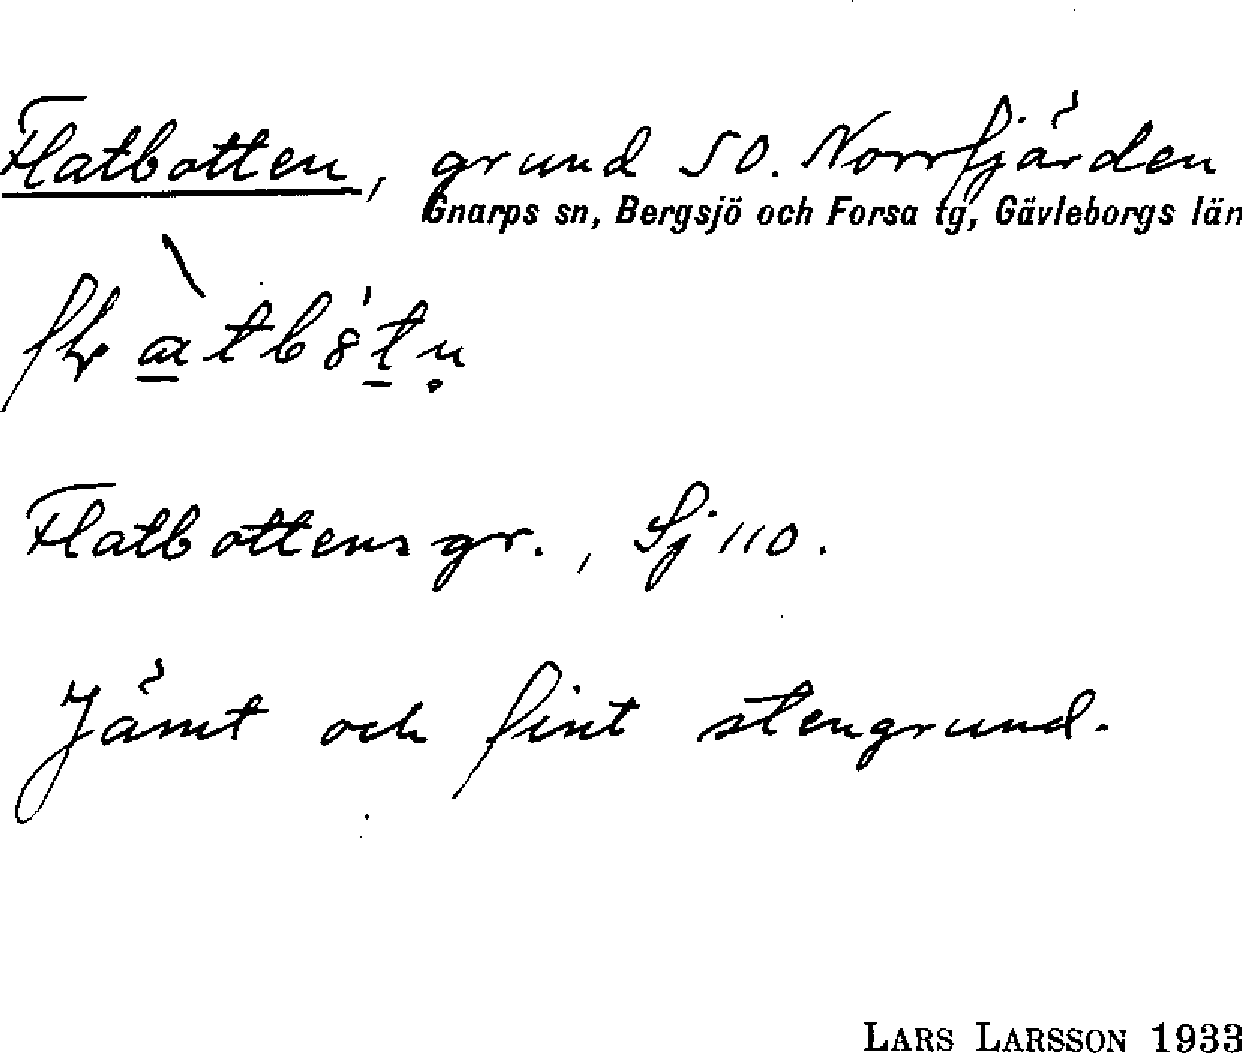 Flatbotten, grund SO. Norrfjärden
Gnarps sn, Bergsjö och Forsa tg, Gävleborgs län
Flatbottensgr., Sj 110.
Jämt och fint stengrund.
LARS LARSSON 1933